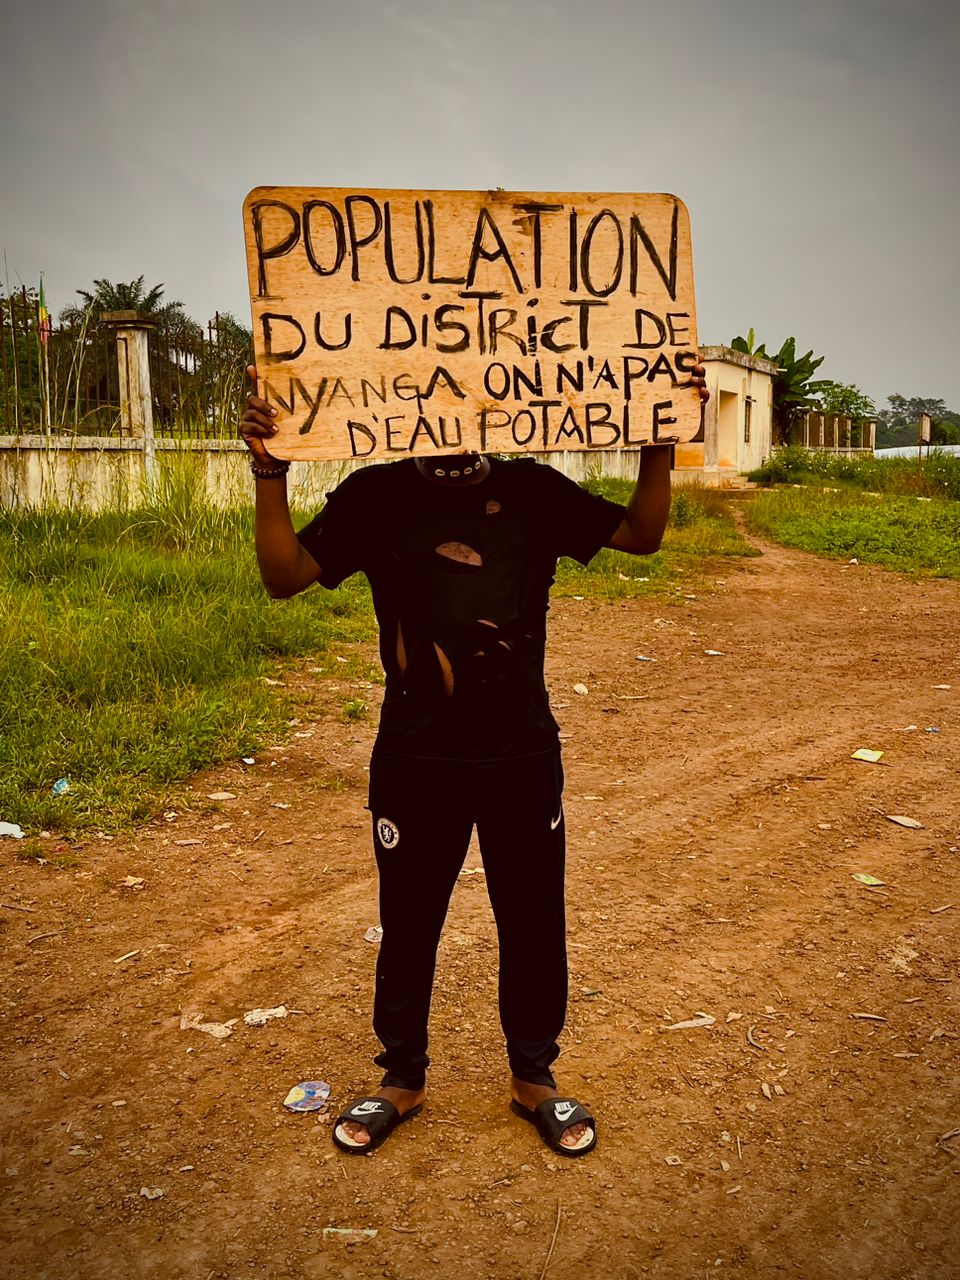 POPULATION
DU DiSTRicT DE
NYANGA ON N'A PAS
D'EAU POTABLE
NIKE
NIKE